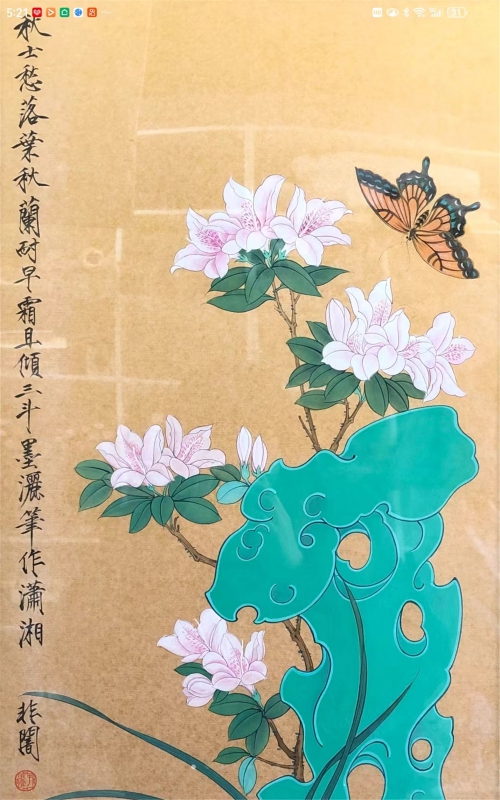 5:21
31
秋士愁落葉秋蘭耐早霜且傾三斗墨灑筆作瀟湘
非闇